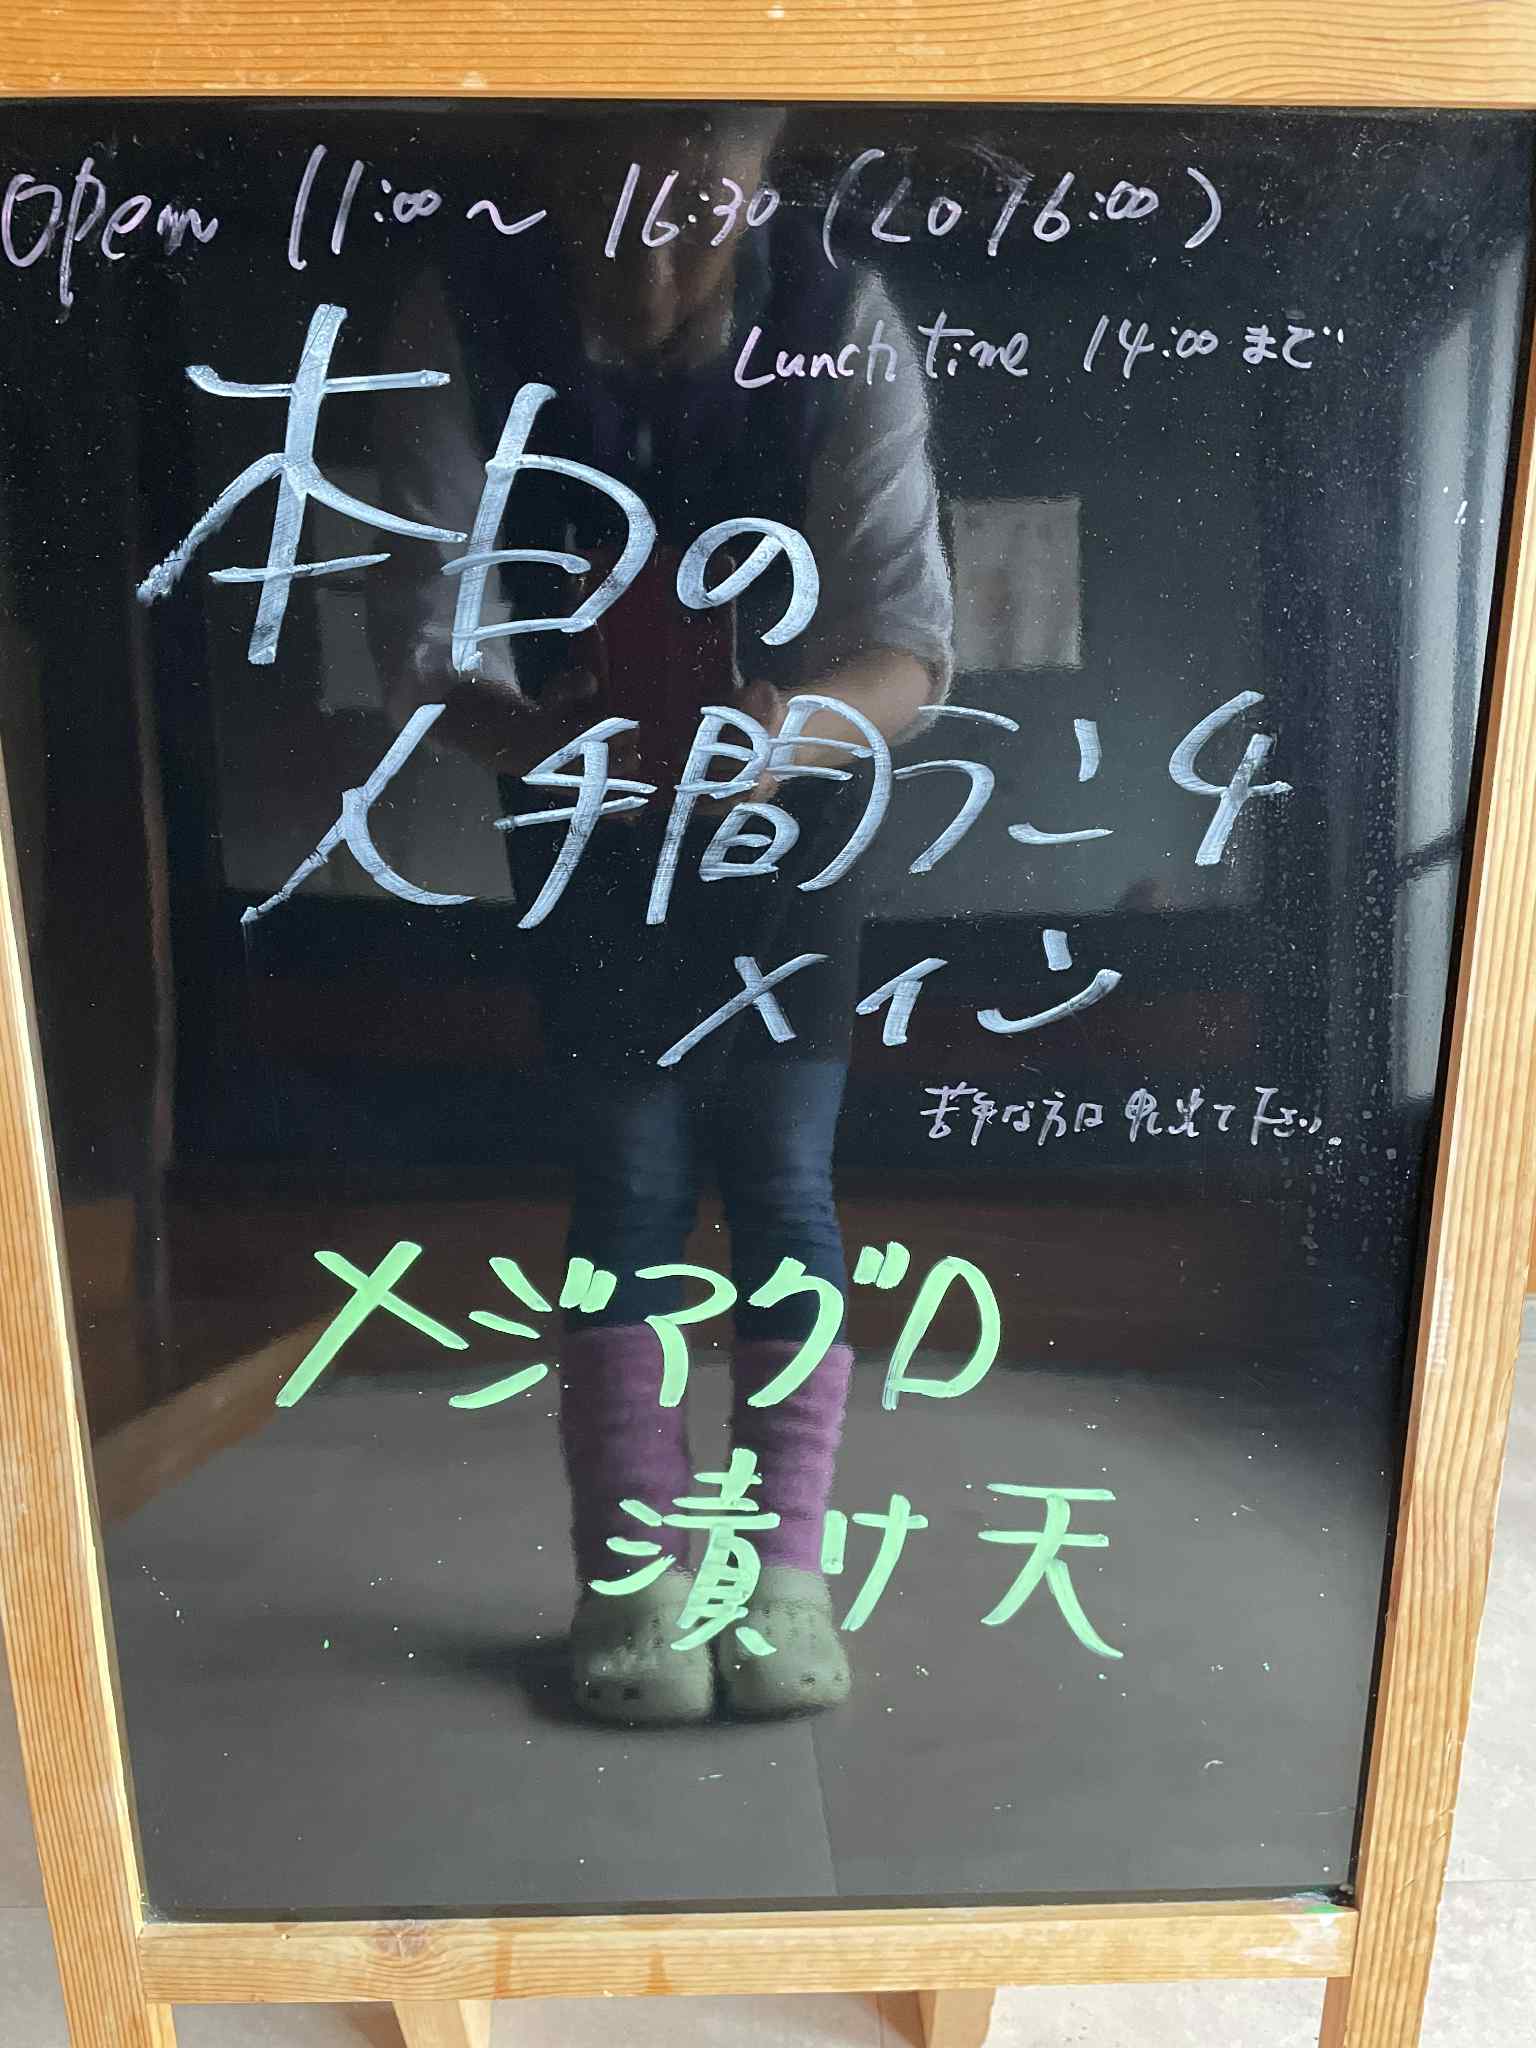 open 11:00~16:30(LO16:00)
Lunch time 14:00まで
本日の
人手間ランチ
メイン
苦手な方は申し出て下さい。
メジマグロ
漬け天